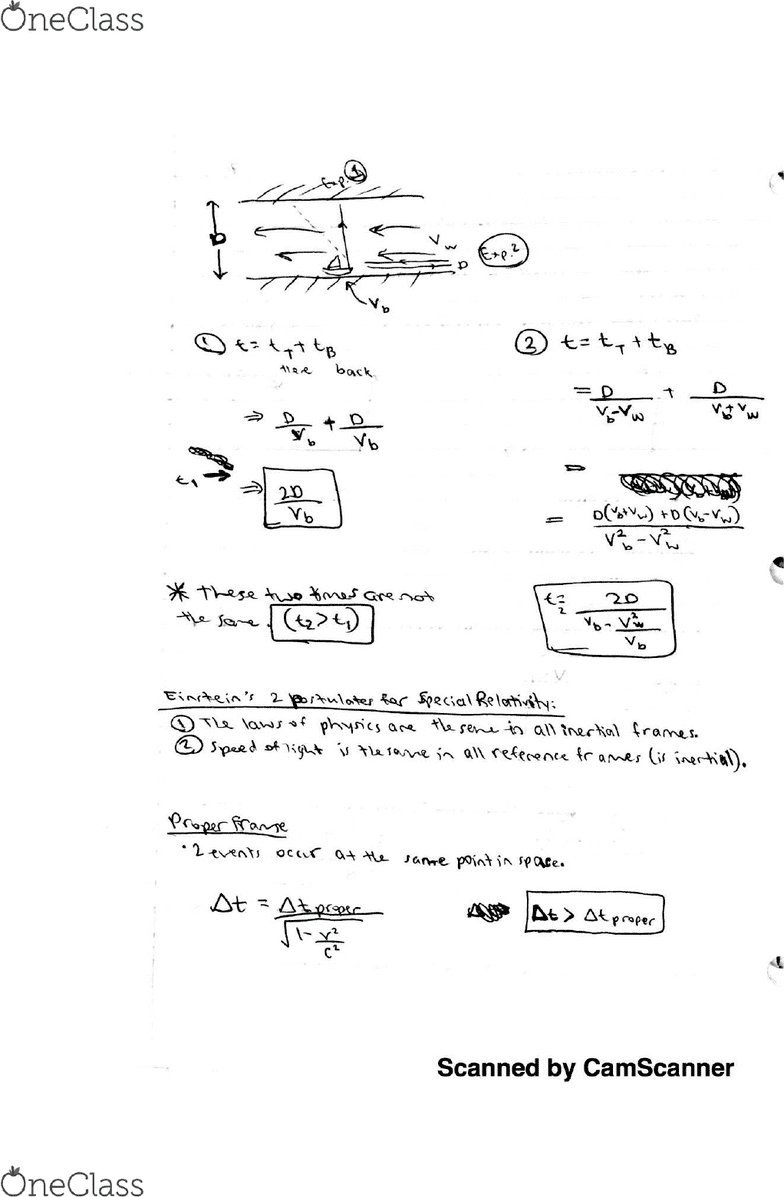 OneClass
Exp. 1
D
Vw
Exp. 2
D
Vb
① t = tT + tB
there back
⇒ D/Vb + D/Vb
t1 → ⇒ 2D/Vb
② t = tT + tB
= D/(Vb-Vw) + D/(Vb+Vw)
=
= (D(Vb+Vw) + D(Vb-Vw))/(Vb² - Vw²)
* These two times are not
the same. (t2 > t1)
t2 = 2D/(Vb - Vw²/Vb)
Einstein's 2 postulates for Special Relativity:
① The laws of physics are the same in all inertial frames.
② Speed of light is the same in all reference frames (is inertial).
Proper Frame
• 2 events occur at the same point in space.
Δt = Δt proper/√(1 - v²/c²)
Δt > Δt proper
Scanned by CamScanner
OneClass